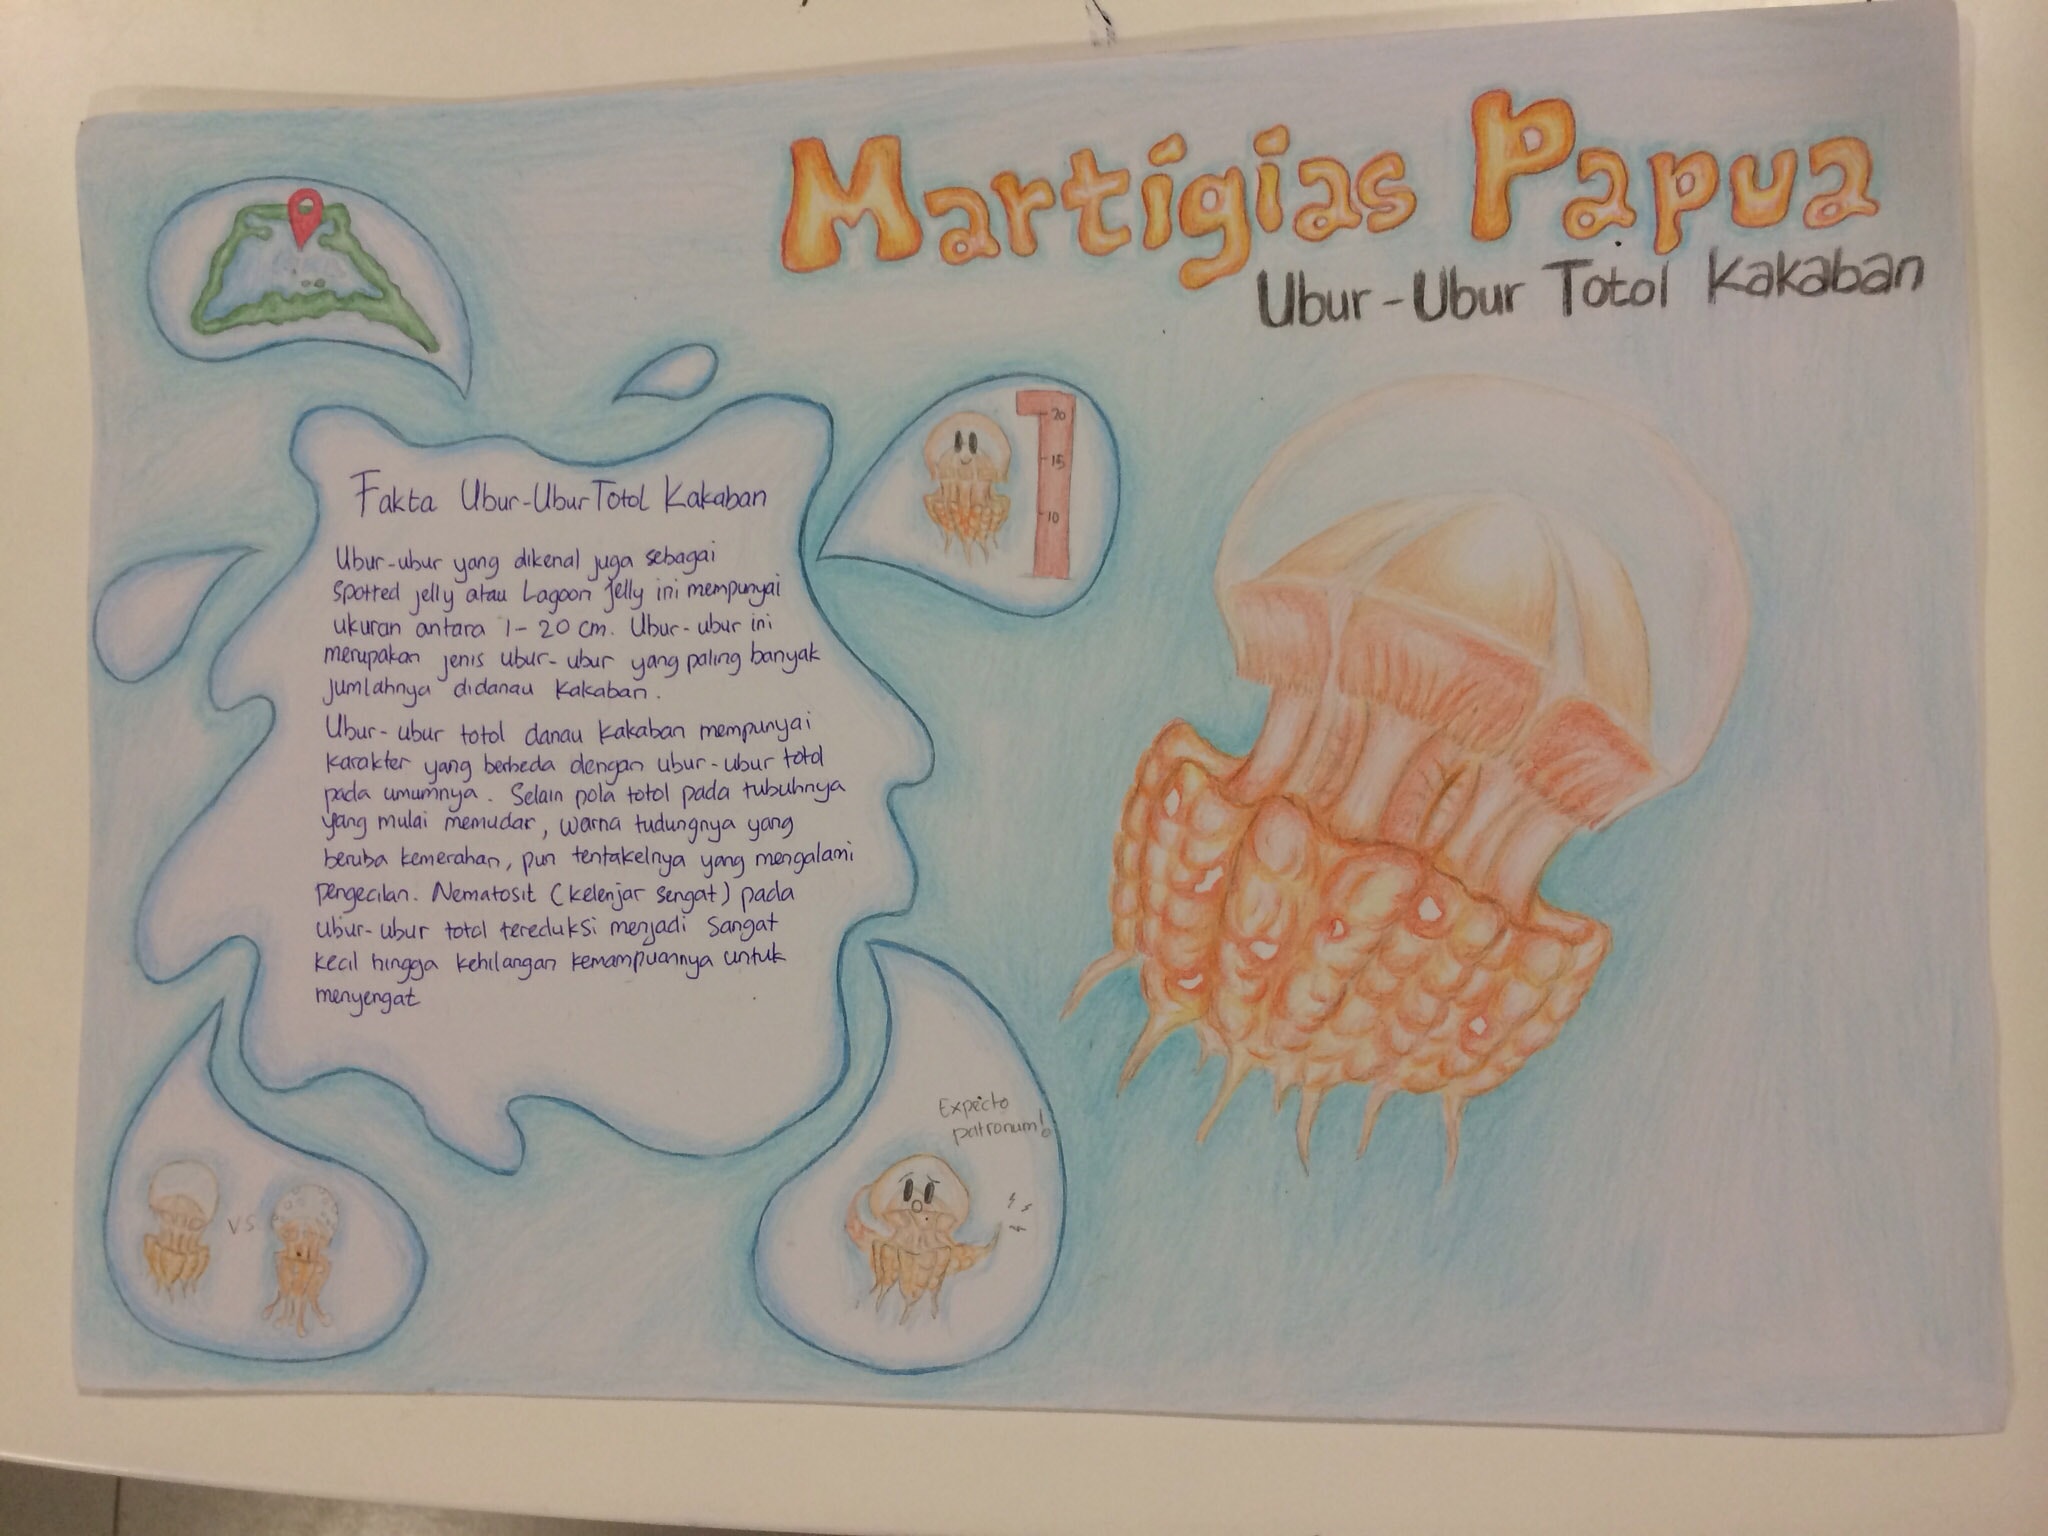 Martigias Papua
Ubur-Ubur Totol Kakaban
Fakta Ubur-Ubur Totol Kakaban
Ubur-ubur yang dikenal juga sebagai
spotted jelly atau Lagoon jelly ini mempunyai
ukuran antara 1-20 cm. Ubur-ubur ini
merupakan jenis ubur-ubur yang paling banyak
jumlahnya didanau Kakaban.
Ubur-ubur totol danau Kakaban mempunyai
karakter yang berbeda dengan ubur-ubur totol
pada umumnya. Selain pola totol pada tubuhnya
yang mulai memudar, warna tudungnya yang
beruba kemerahan, pun tentakelnya yang mengalami
pengecilan. Nematosit (kelenjar sengat) pada
ubur-ubur totol tereduksi menjadi sangat
kecil hingga kehilangan kemampuannya untuk
menyengat
20
15
10
VS
Expecto
patronum!